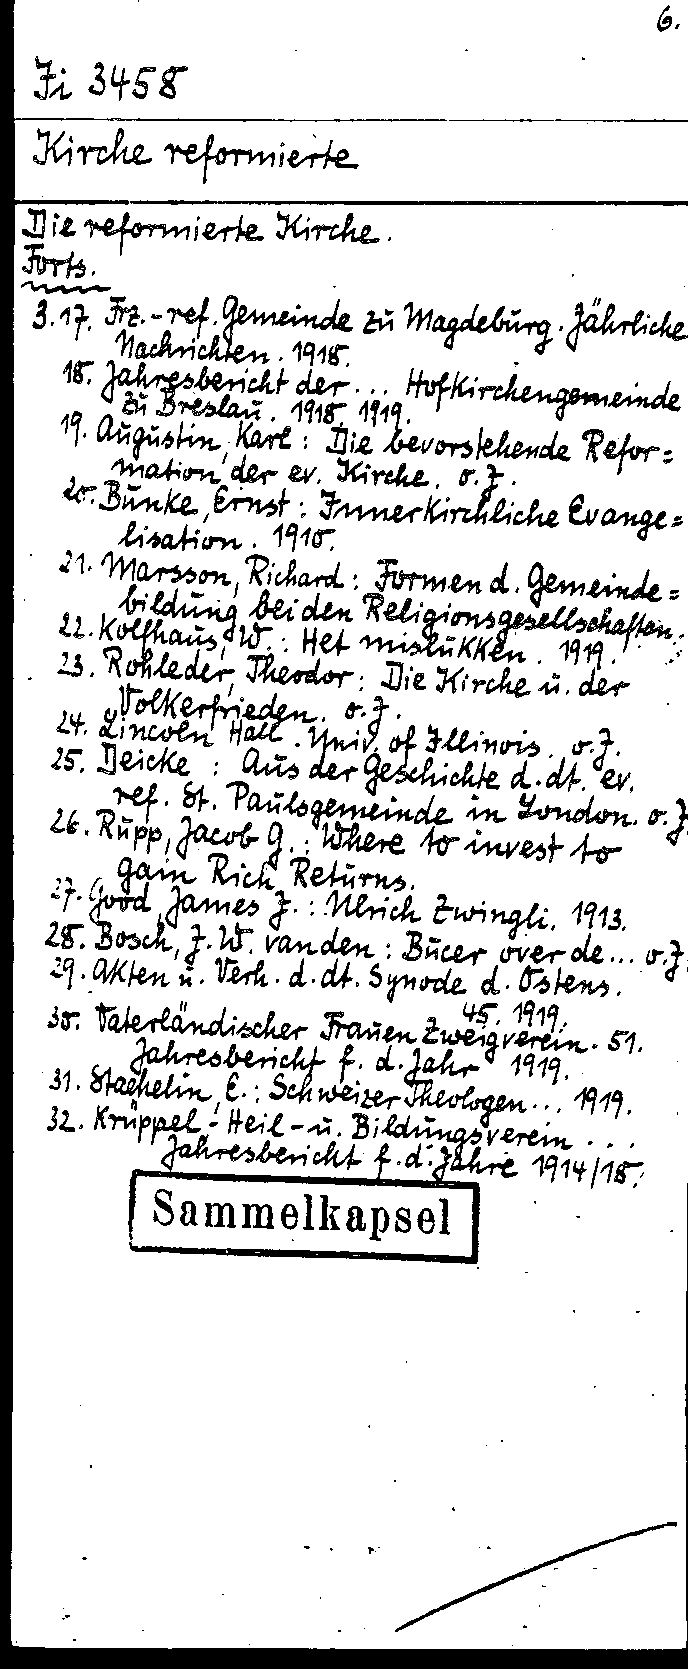 6.
Ji 3458
Kirche reformierte
Die reformierte Kirche.
Forts.
3.17. Frz.-ref. Gemeinde zu Magdeburg. Jährliche
Nachrichten. 1918.
18. Jahresbericht der... Hofkirchengemeinde
zu Breslau. 1918, 1919.
19. Augustin, Karl: Die bevorstehende Refor=
mation der ev. Kirche. o.J.
20. Bunke, Ernst: Innerkirchliche Evange=
lisation. 1910.
21. Marsson, Richard: Formen d. Gemeinde=
bildung bei den Religionsgesellschaften.
22. Kolfhaus, W.: Het mislukken. 1919.
23. Rohleder, Theodor: Die Kirche u. der
Völkerfrieden. o.J.
24. Lincoln Hall. Univ. of Illinois. o.J.
25. Deicke: Aus der Geschichte d. dt. ev.
ref. St. Paulsgemeinde in London. o.J.
26. Rupp, Jacob G.: Where to invest to
gain Rich Returns.
27. Good, James J.: Ulrich Zwingli. 1913.
28. Bosch, J.W. van den: Bucer over de... o.J.
29. Akten u. Verh. d. dt. Synode d. Ostens.
45. 1919.
30. Vaterländischer Frauen Zweigverein. 51.
Jahresbericht f. d. Jahr 1919.
31. Staehelin, E.: Schweizer Theologen... 1919.
32. Krüppel-Heil-u. Bildungsverein...
Jahresbericht f. d. Jahre 1914/18.
Sammelkapsel